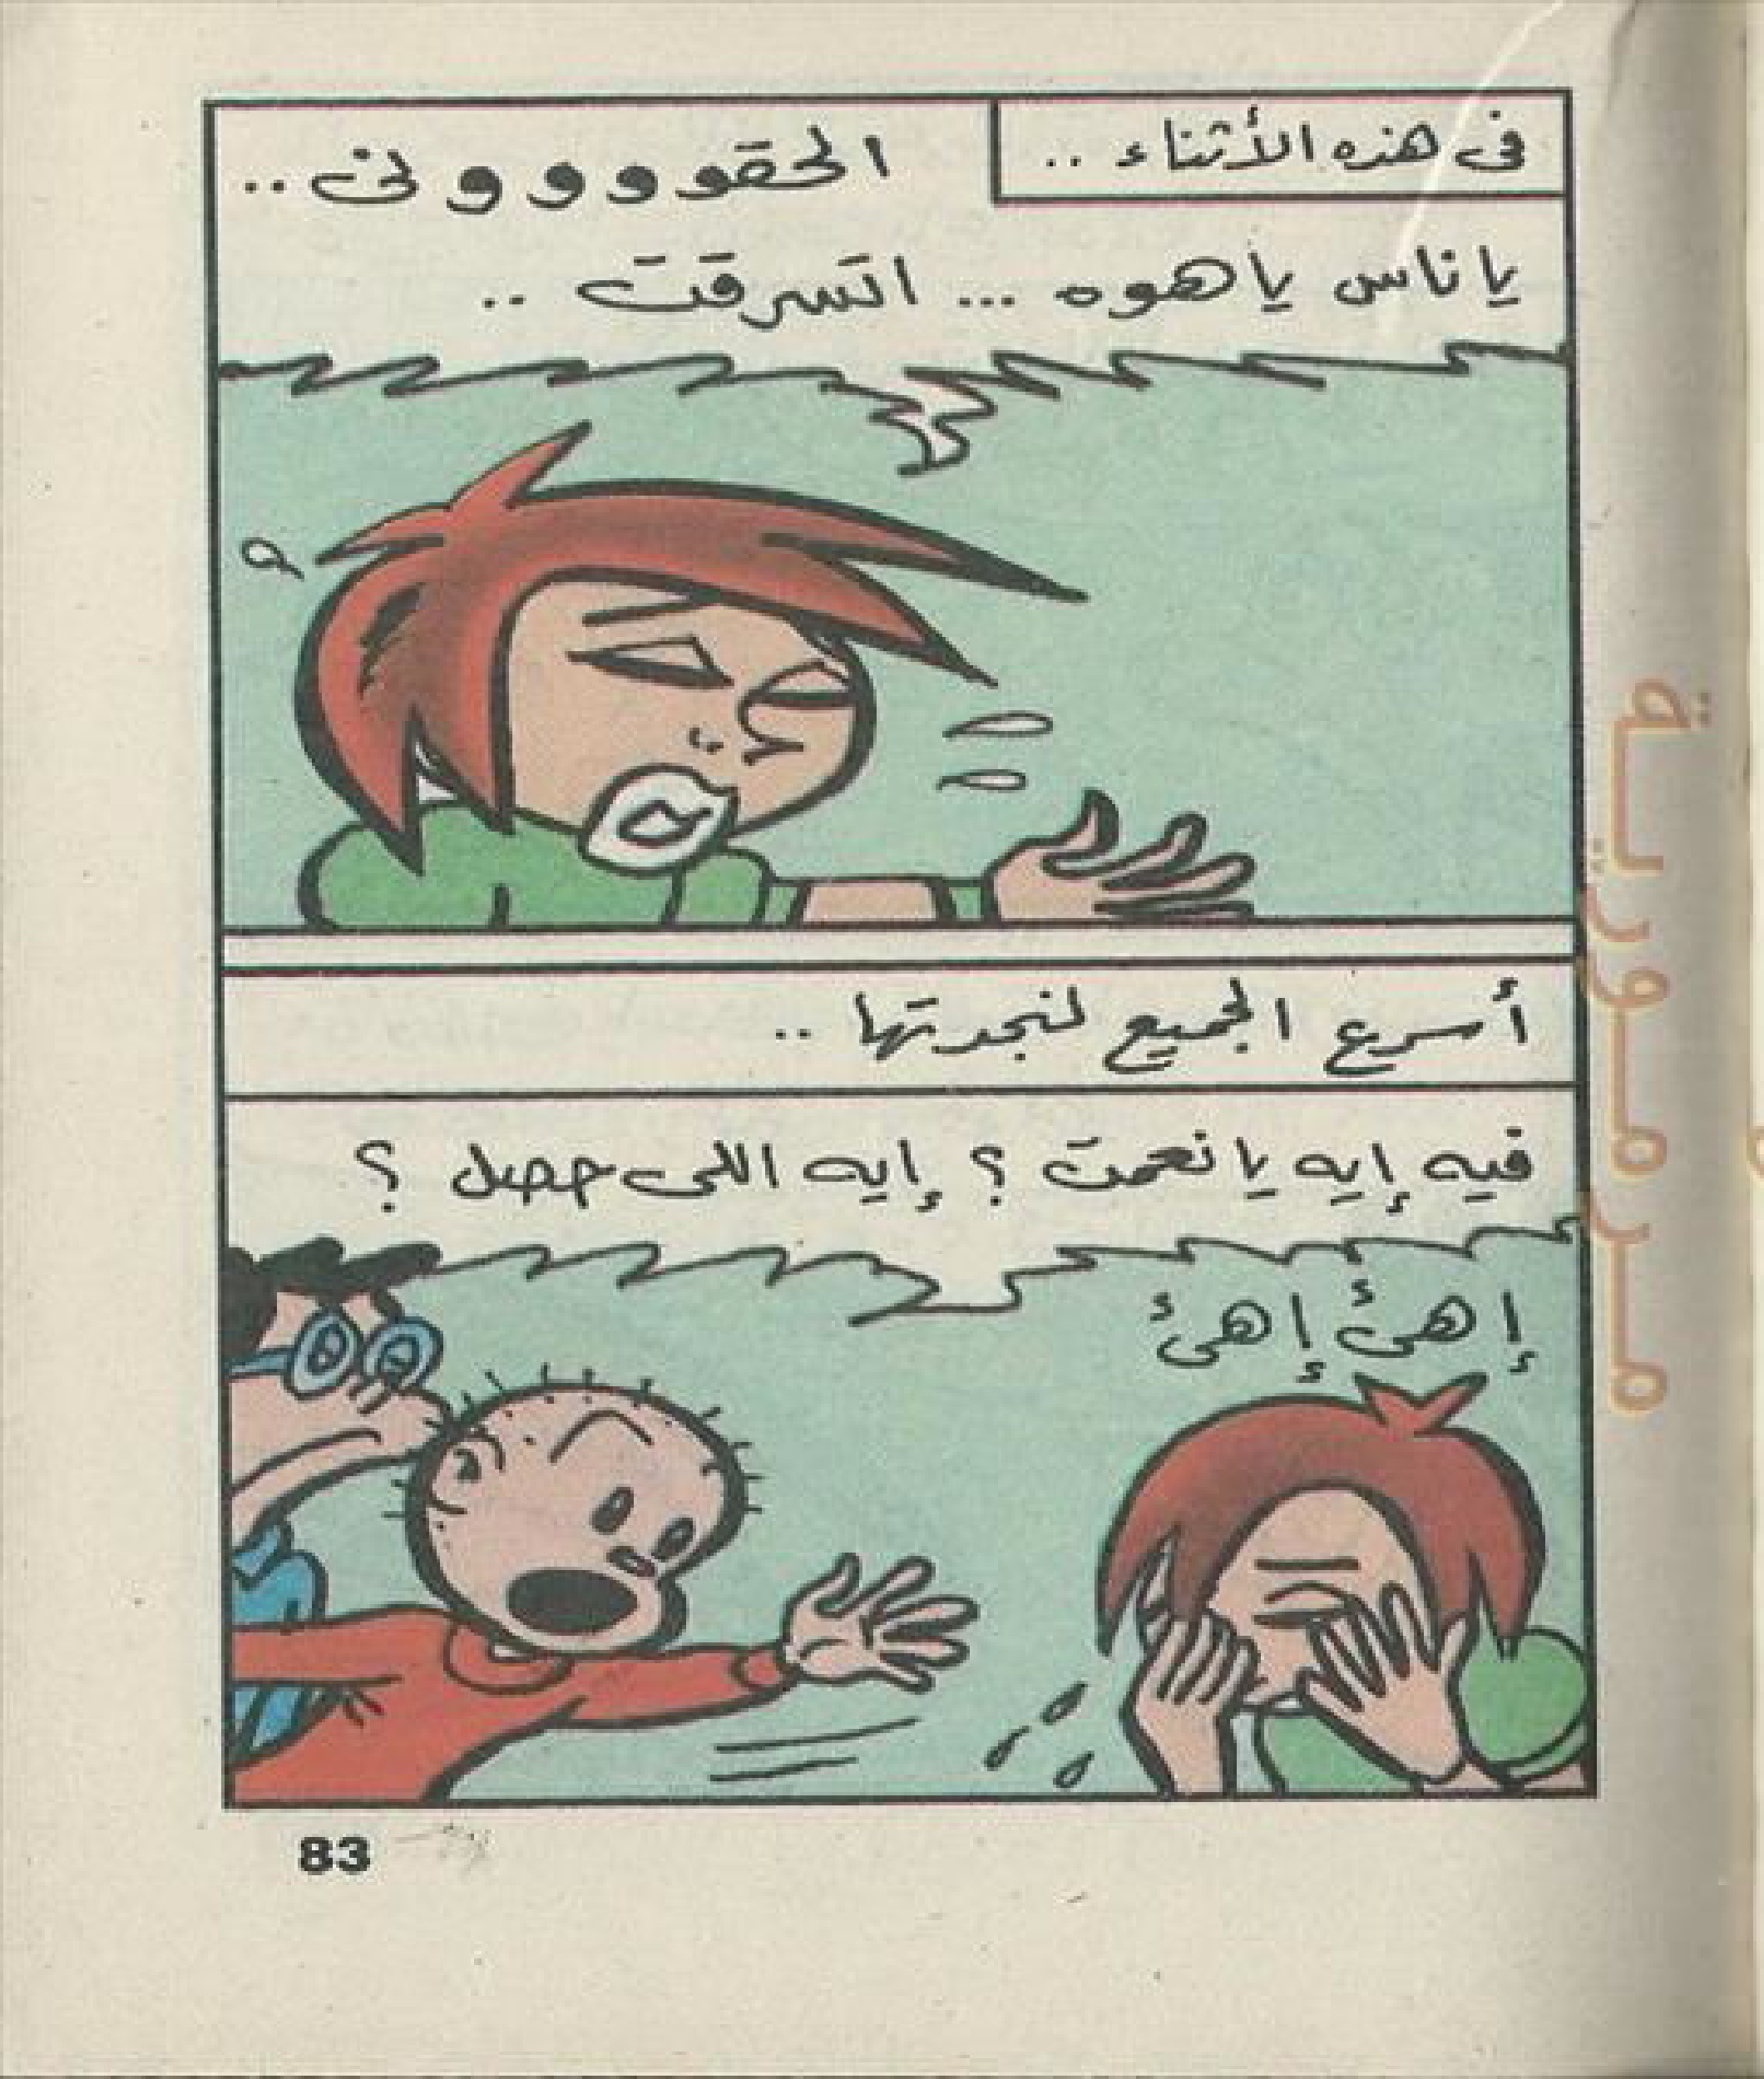 فى هذه الأثناء ..
الحقوووونى ..
يا ناس ياهوه ... اتسرقت ..
أسرع الجميع لنجدتها ..
فيه إيه يا نعمت ؟ إيه اللى حصل ؟
إهئ إهئ
83
مرمورية